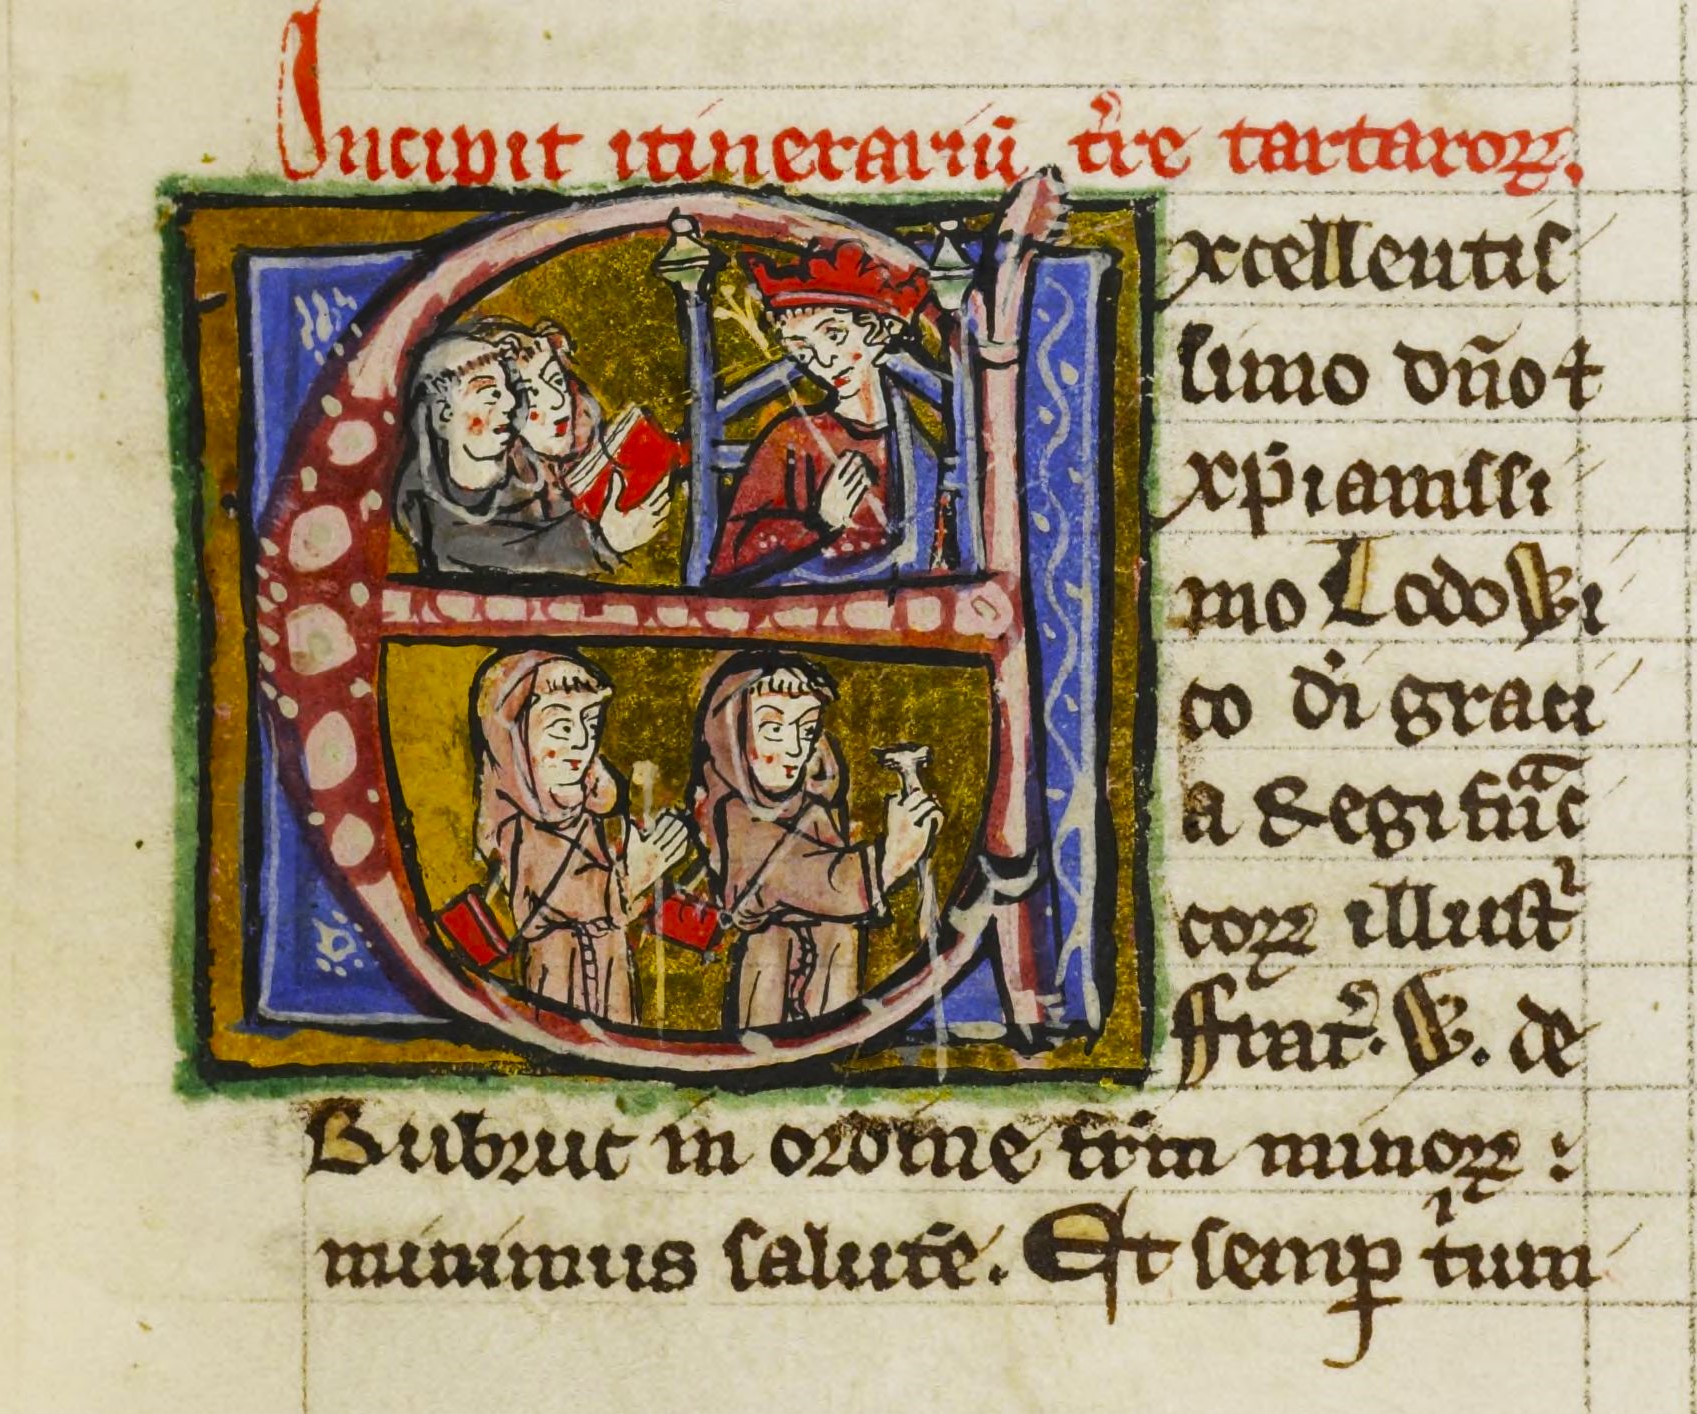 Incipit itinerariū t̄re tartaroꝝ.
Excellentis
simo dn̄o ⁊
xp̄ianissi
mo Lodowi
co dī graci
a Regi fͣnc
coꝝ illustͥ
ffrat̄. W. de
Rubruc in ordine fr̄m minoꝝ:
minimus salutē. Et semꝑ tͥum